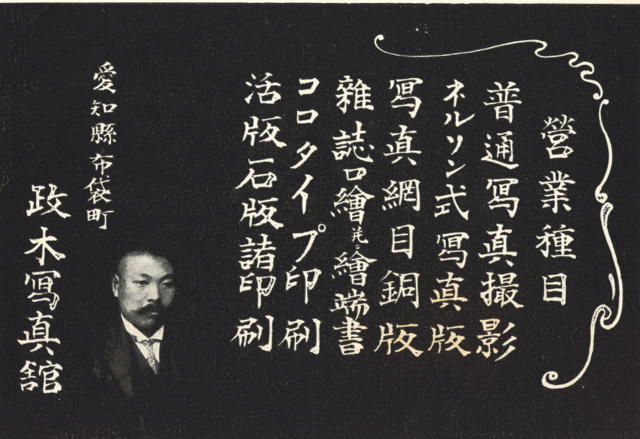 營業種目
普通寫真撮影
ネルソン式寫真版
寫真網目銅版
雜誌口繪并ニ繪端書
コロタイプ印刷
活版石版諸印刷
愛知縣布袋町
政木寫真舘